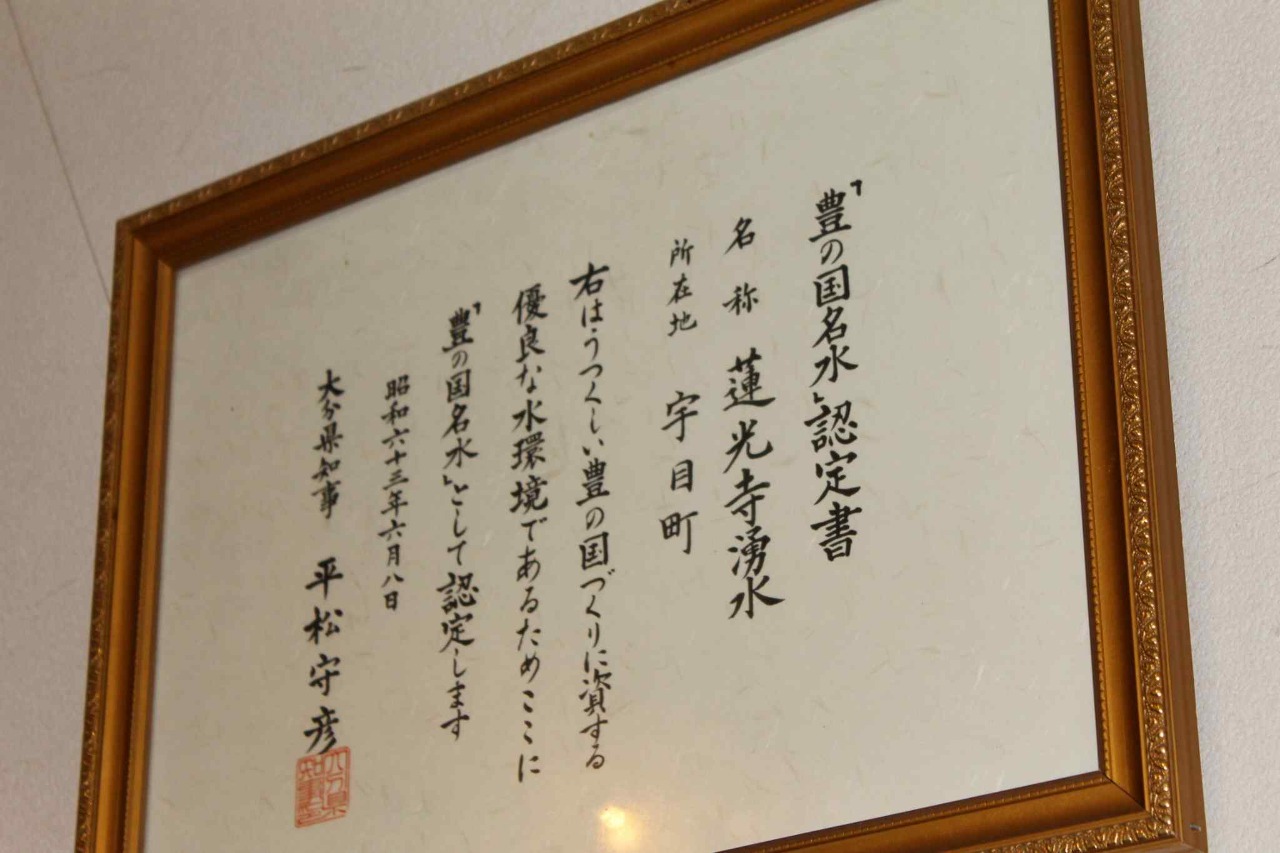 「豊の国名水」認定書
名称 蓮光寺湧水
所在地 宇目町
右はうつくしい豊の国づくりに資する
優良な水環境であるためここに
「豊の国名水」として認定します
昭和六十三年六月八日
大分県知事 平松守彦
大分県知事之印